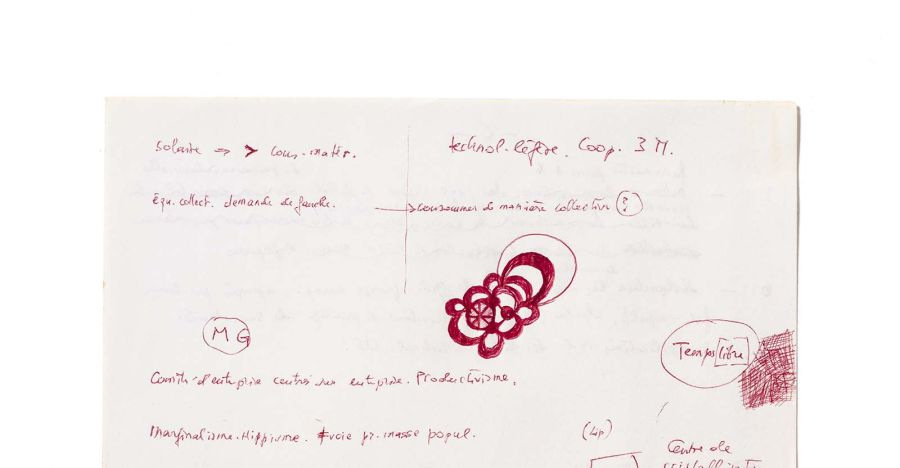 Solaire => > cons. matér.
technol. légère. Coop. 3 M.
Équ. collect. demande de gauche.
→ consommer de manière collective (?)
M G
Temps libre
Comité d'entreprise centré sur entreprise. Productivisme.
Marginalisme. Hippisme. ≠ voie pr. masse popul.
(Lip)
Centre de